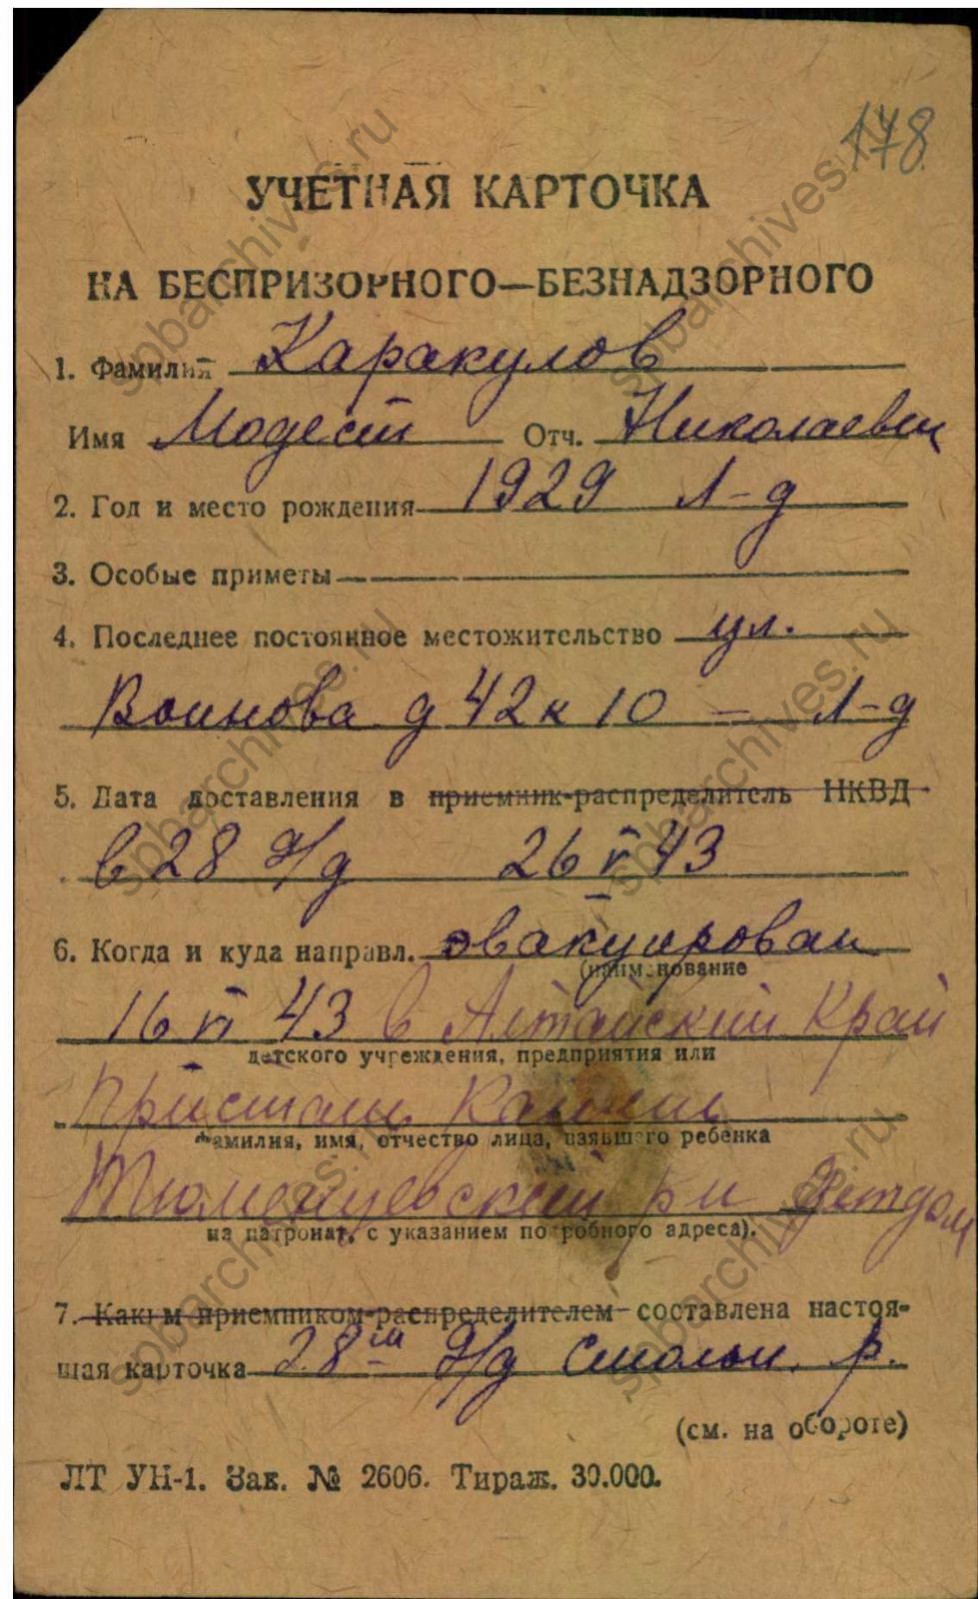 178
УЧЕТНАЯ КАРТОЧКА
НА БЕСПРИЗОРНОГО—БЕЗНАДЗОРНОГО
1. Фамилия Каракулов
Имя Модест Отч. Николаевич
2. Год и место рождения 1929 Л-д
3. Особые приметы
4. Последнее постоянное местожительство ул.
Воинова д 42 к 10 — Л-д
5. Дата доставления в приемник-распределитель НКВД
в 28 д/д 26 V 43
6. Когда и куда направл. эвакуирован
(наименование
16 VI 43 в Алтайский Край
детского учреждения, предприятия или
Пристань
фамилия, имя, отчество лица, взявшего ребенка
Тюменцевский р-н Детдом
на патронат, с указанием подробного адреса).
7. Каким приемником-распределителем составлена настоя-
щая карточка 28ой д/д Смольн. р.
(см. на обороте)
ЛТ УН-1. Зак. № 2606. Тираж. 30.000.
spbarchives.ru
spbarchives.ru
spbarchives.ru
spbarchives.ru
spbarchives.ru
spbarchives.ru